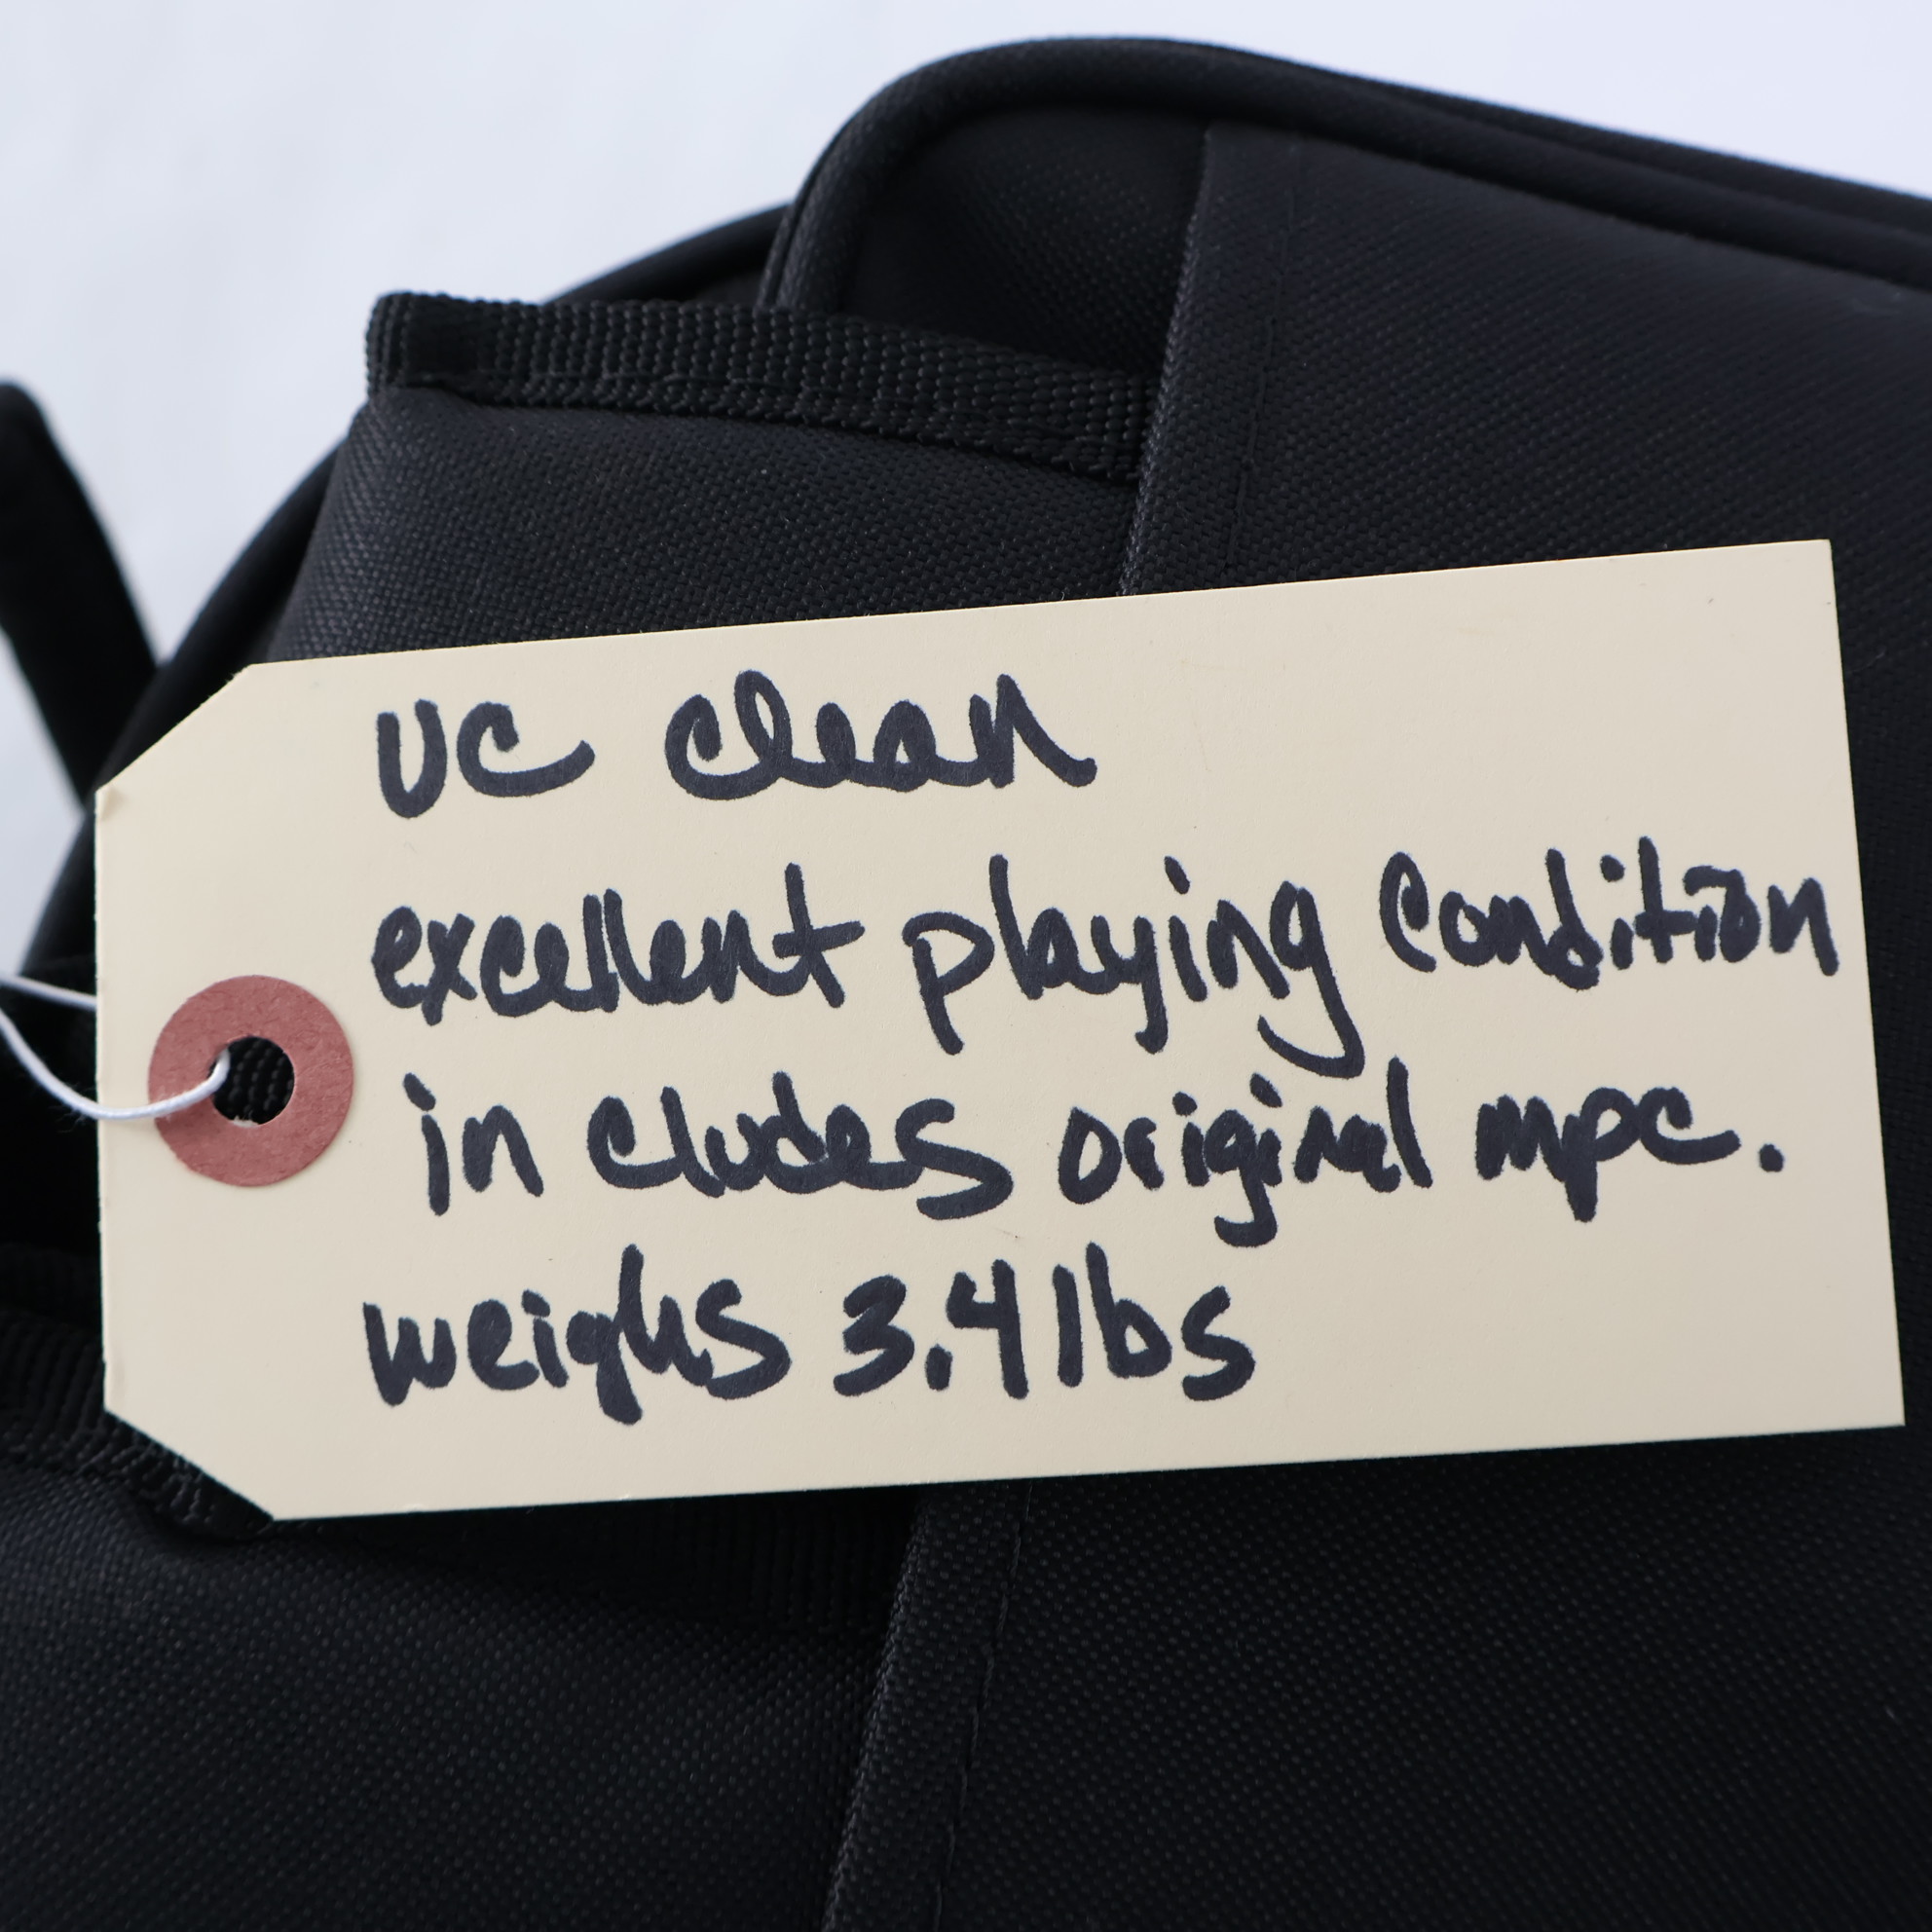 UC clean
excellent playing condition
in cludes original mpc.
weighs 3.4 lbs